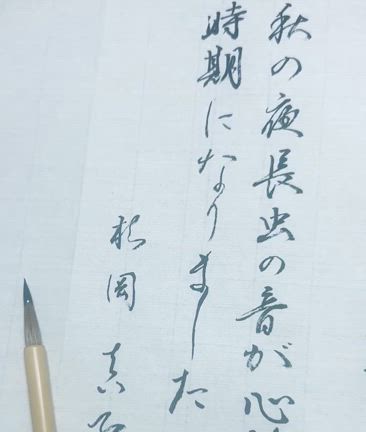 秋の夜長虫の音が心
時期になりました
松岡真